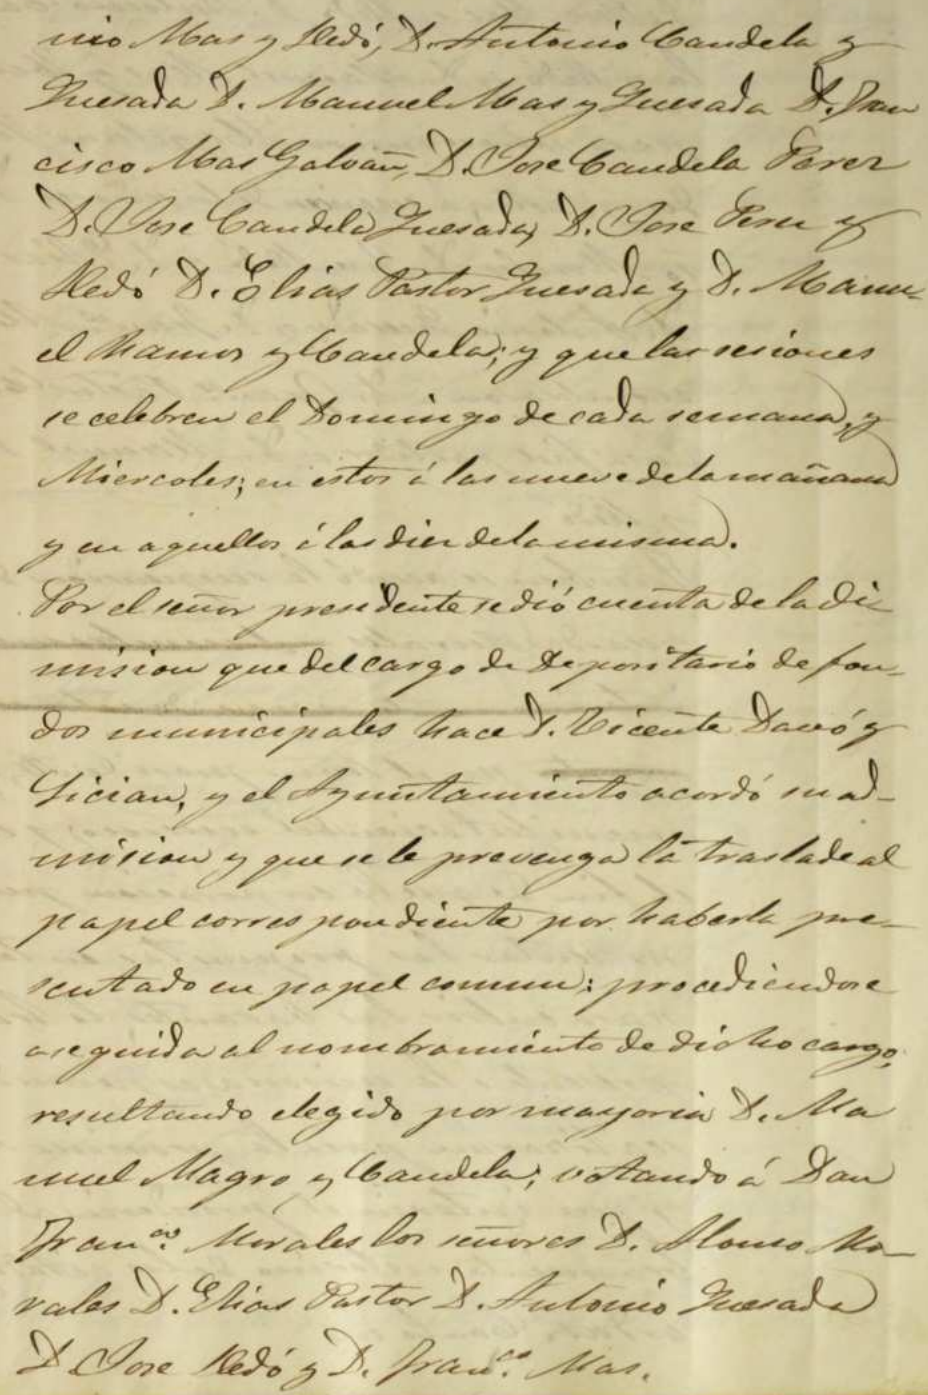 nio Mas y Ledó, D. Antonio Candela y
Quesada D. Manuel Mas y Quesada D. Fran
cisco Mas Galvañ, D. Jose Candela Perez
D. Jose Candela Quesada, D. Jose Perez y
Ledó D. Elias Pastor Quesada y D. Manu-
el Ramos y Candela; y que las sesiones
se celebren el Domingo de cada semana, y
Miercoles; en estos á las nueve de la mañana
y en aquellos á las diez de la misma.
Por el señor presidente se dió cuenta de la di
mision que del cargo de Depositario de fon-
dos municipales hace D. Vicente Davó y
, y el Ayuntamiento acordó su ad-
mision y que se le prevenga la traslade al
papel correspondiente por haberla pre-
sentado en papel comun: procediendose
aseguida al nombramiento de dicho cargo,
resultando elegido por mayoria D. Ma
nuel Magro y Candela; votando á Don
Fran.co Morales los señores D. Alonso Mo-
rales D. Elias Pastor D. Antonio Quesada
D. Jose Ledó y D. Fran.co Mas.